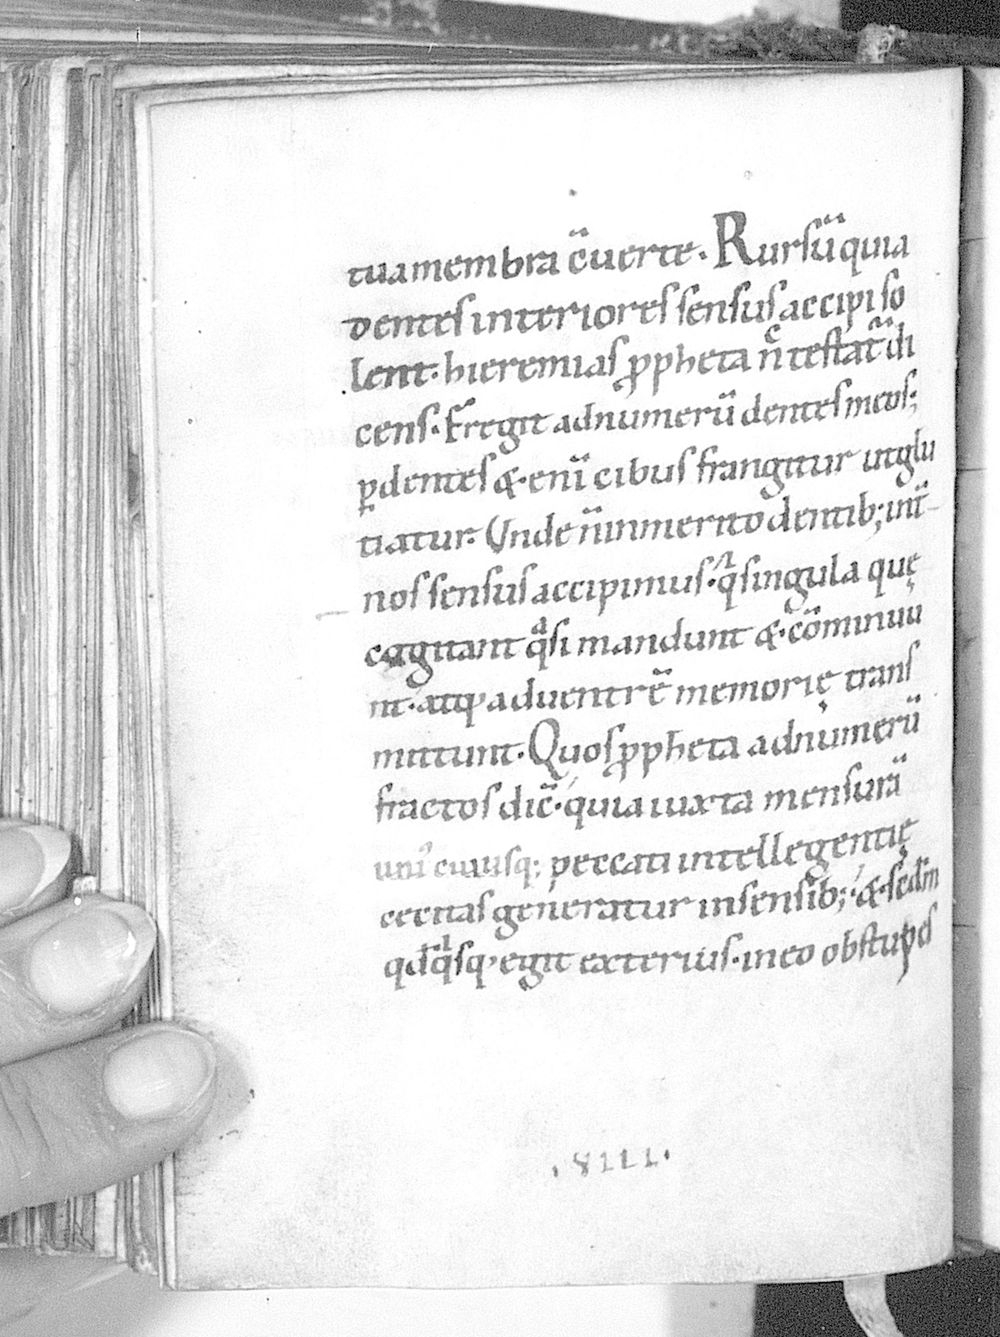 tua membra c̄uerte. Rursū quia
dentes interiores sensus accipi so
lent. hieremias ꝓpheta n̄ testat̄ di
cens. Fregit ad numerū dentes meos;
ꝑ dentes &. enī cibus frangitur ut glu
tiatur. Unde n̄ inmerito dentib; int̄
nos sensus accipimus. q̄ singula quę
cogitant qͣsi mandunt &. cōminuu
nt. atq; ad uentrē memorię trans
mittunt. Quos ꝓpheta ad numerū
fractos dic̄. quia iuxta mensurā
uni cuiusq; peccati intellegentię
cecitas generatur in sensib;. &. scd̄m
qd̄ qͥsq; egit exterius. in eo obstupes
.VIIII.